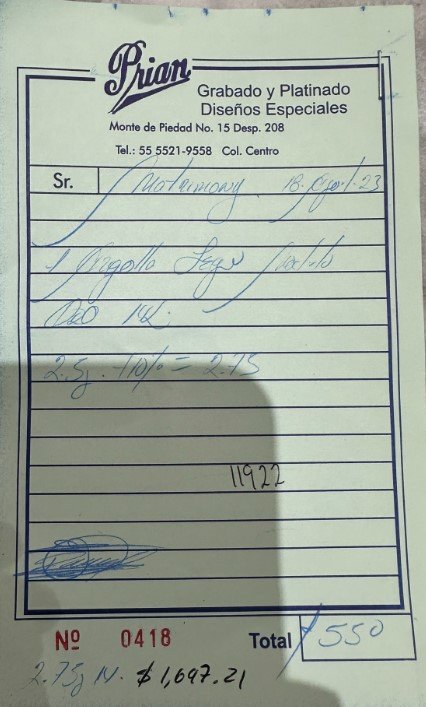 Prian
Grabado y Platinado
Diseños Especiales
Monte de Piedad No. 15 Desp. 208
Tel.: 55 5521-9558 Col. Centro
Sr. Matrimony 18. 23
1 Argolla
14k.
2.5g. +10% = 2.75
11922
Nº 0418 Total $550
2.75g $1,697.21